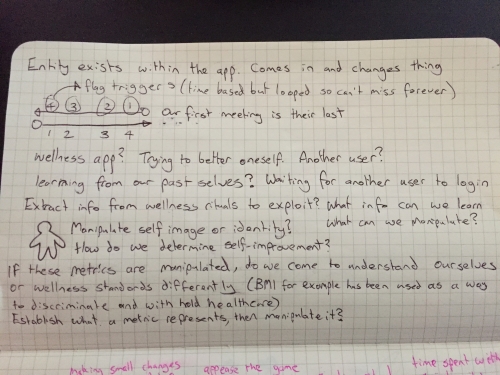 Entity exists within the app. Comes in and changes thing
flag triggers (time based but looped so can't miss forever)
4 3 2 1
Our first meeting is their last
1 2 3 4
wellness app? Trying to better oneself. Another user?
learning from our past selves? Waiting for another user to login
Extract info from wellness rituals to exploit? What info can we learn
Manipulate self image or identity? What can we manipulate?
How do we determine self-improvement?
If these metrics are manipulated, do we come to understand ourselves
or wellness standards differently (BMI for example has been used as a way
to discriminate and with hold healthcare)
Establish what a metric represents, then manipulate it?
making small changes appease the game time spent